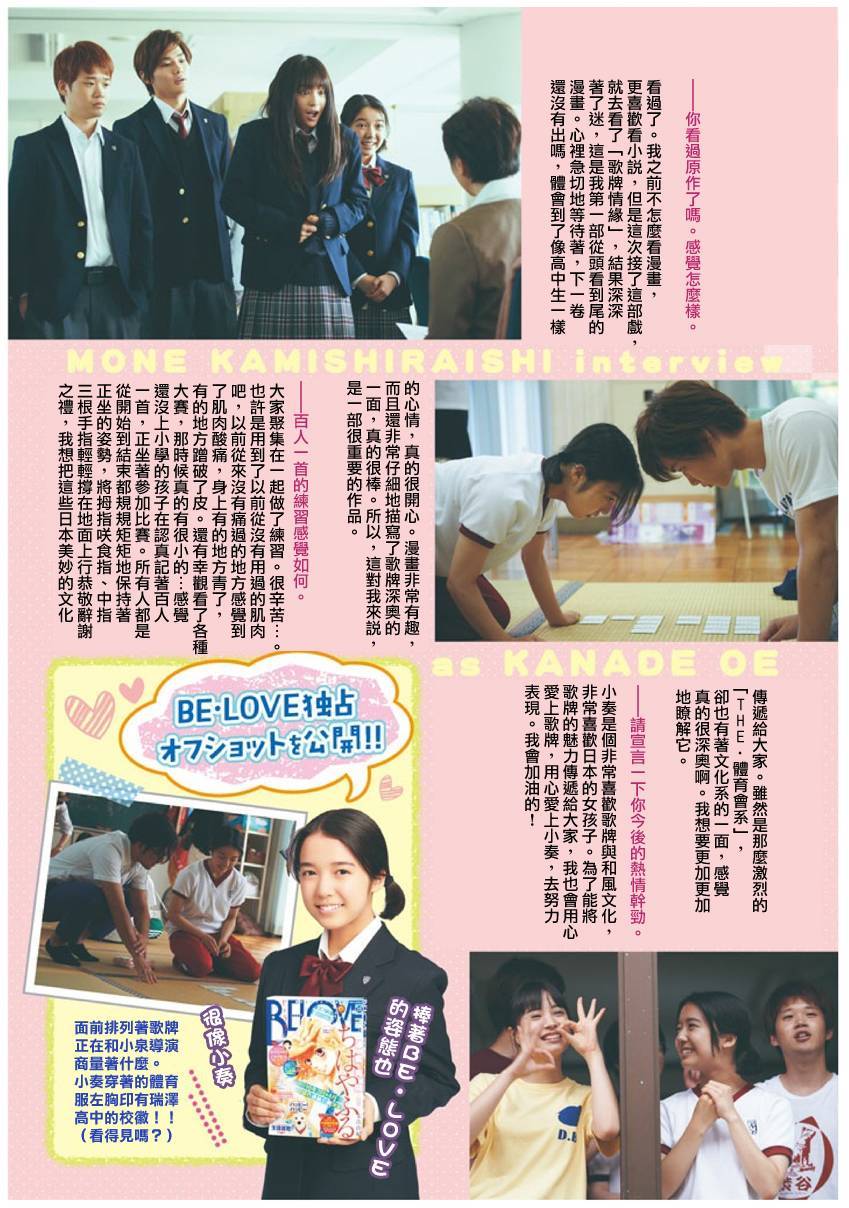 ──你看過原作了嗎。感覺怎麼樣。
看過了。我之前不怎麼看漫畫，
更喜歡看小說，但是這次接了這部戲，
就去看了「歌牌情緣」，結果深深
著了迷，這是我第一部從頭看到尾的
漫畫。心裡急切地等待著，下一卷
還沒有出嗎，體會到了像高中生一樣
MONE KAMISHIRAISHI interview
的心情，真的很開心。漫畫非常有趣，
而且還非常仔細地描寫了歌牌深奧的
一面，真的很棒。所以，這對我來說，
是一部很重要的作品。
──百人一首的練習感覺如何。
大家聚集在一起做了練習。很辛苦…。
也許是用到了以前從沒有用過的肌肉
吧，以前從來沒有痛過的地方感覺到
了肌肉酸痛，身上有的地方青了，
有的地方蹭破了皮。還有幸觀看了各種
大賽，那時候真的有很小的…感覺
還沒上小學的孩子在認真記著百人
一首，正坐著參加比賽。所有人都是
從開始到結束都規規矩矩地保持著
正坐的姿勢，將拇指咲食指、中指
三根手指輕輕撐在地面上行恭敬辭謝
之禮，我想把這些日本美妙的文化
as KANADE OE
傳遞給大家。雖然是那麼激烈的
「THE·體育會系」，
卻也有著文化系的一面，感覺
真的很深奧啊。我想要更加更加
地瞭解它。
──請宣言一下你今後的熱情幹勁。
小奏是個非常喜歡歌牌與和風文化，
非常喜歡日本的女孩子。為了能將
歌牌的魅力傳遞給大家，我也會用心
愛上歌牌，用心愛上小奏，去努力
表現。我會加油的！
BE·LOVE独占
オフショットを公開!!
捧著BE·LOVE
的姿態也
很像小奏
BE LOVE
ちはやふる
面前排列著歌牌
正在和小泉導演
商量著什麼。
小奏穿著的體育
服左胸印有瑞澤
高中的校徽！！
（看得見嗎？）
渋谷